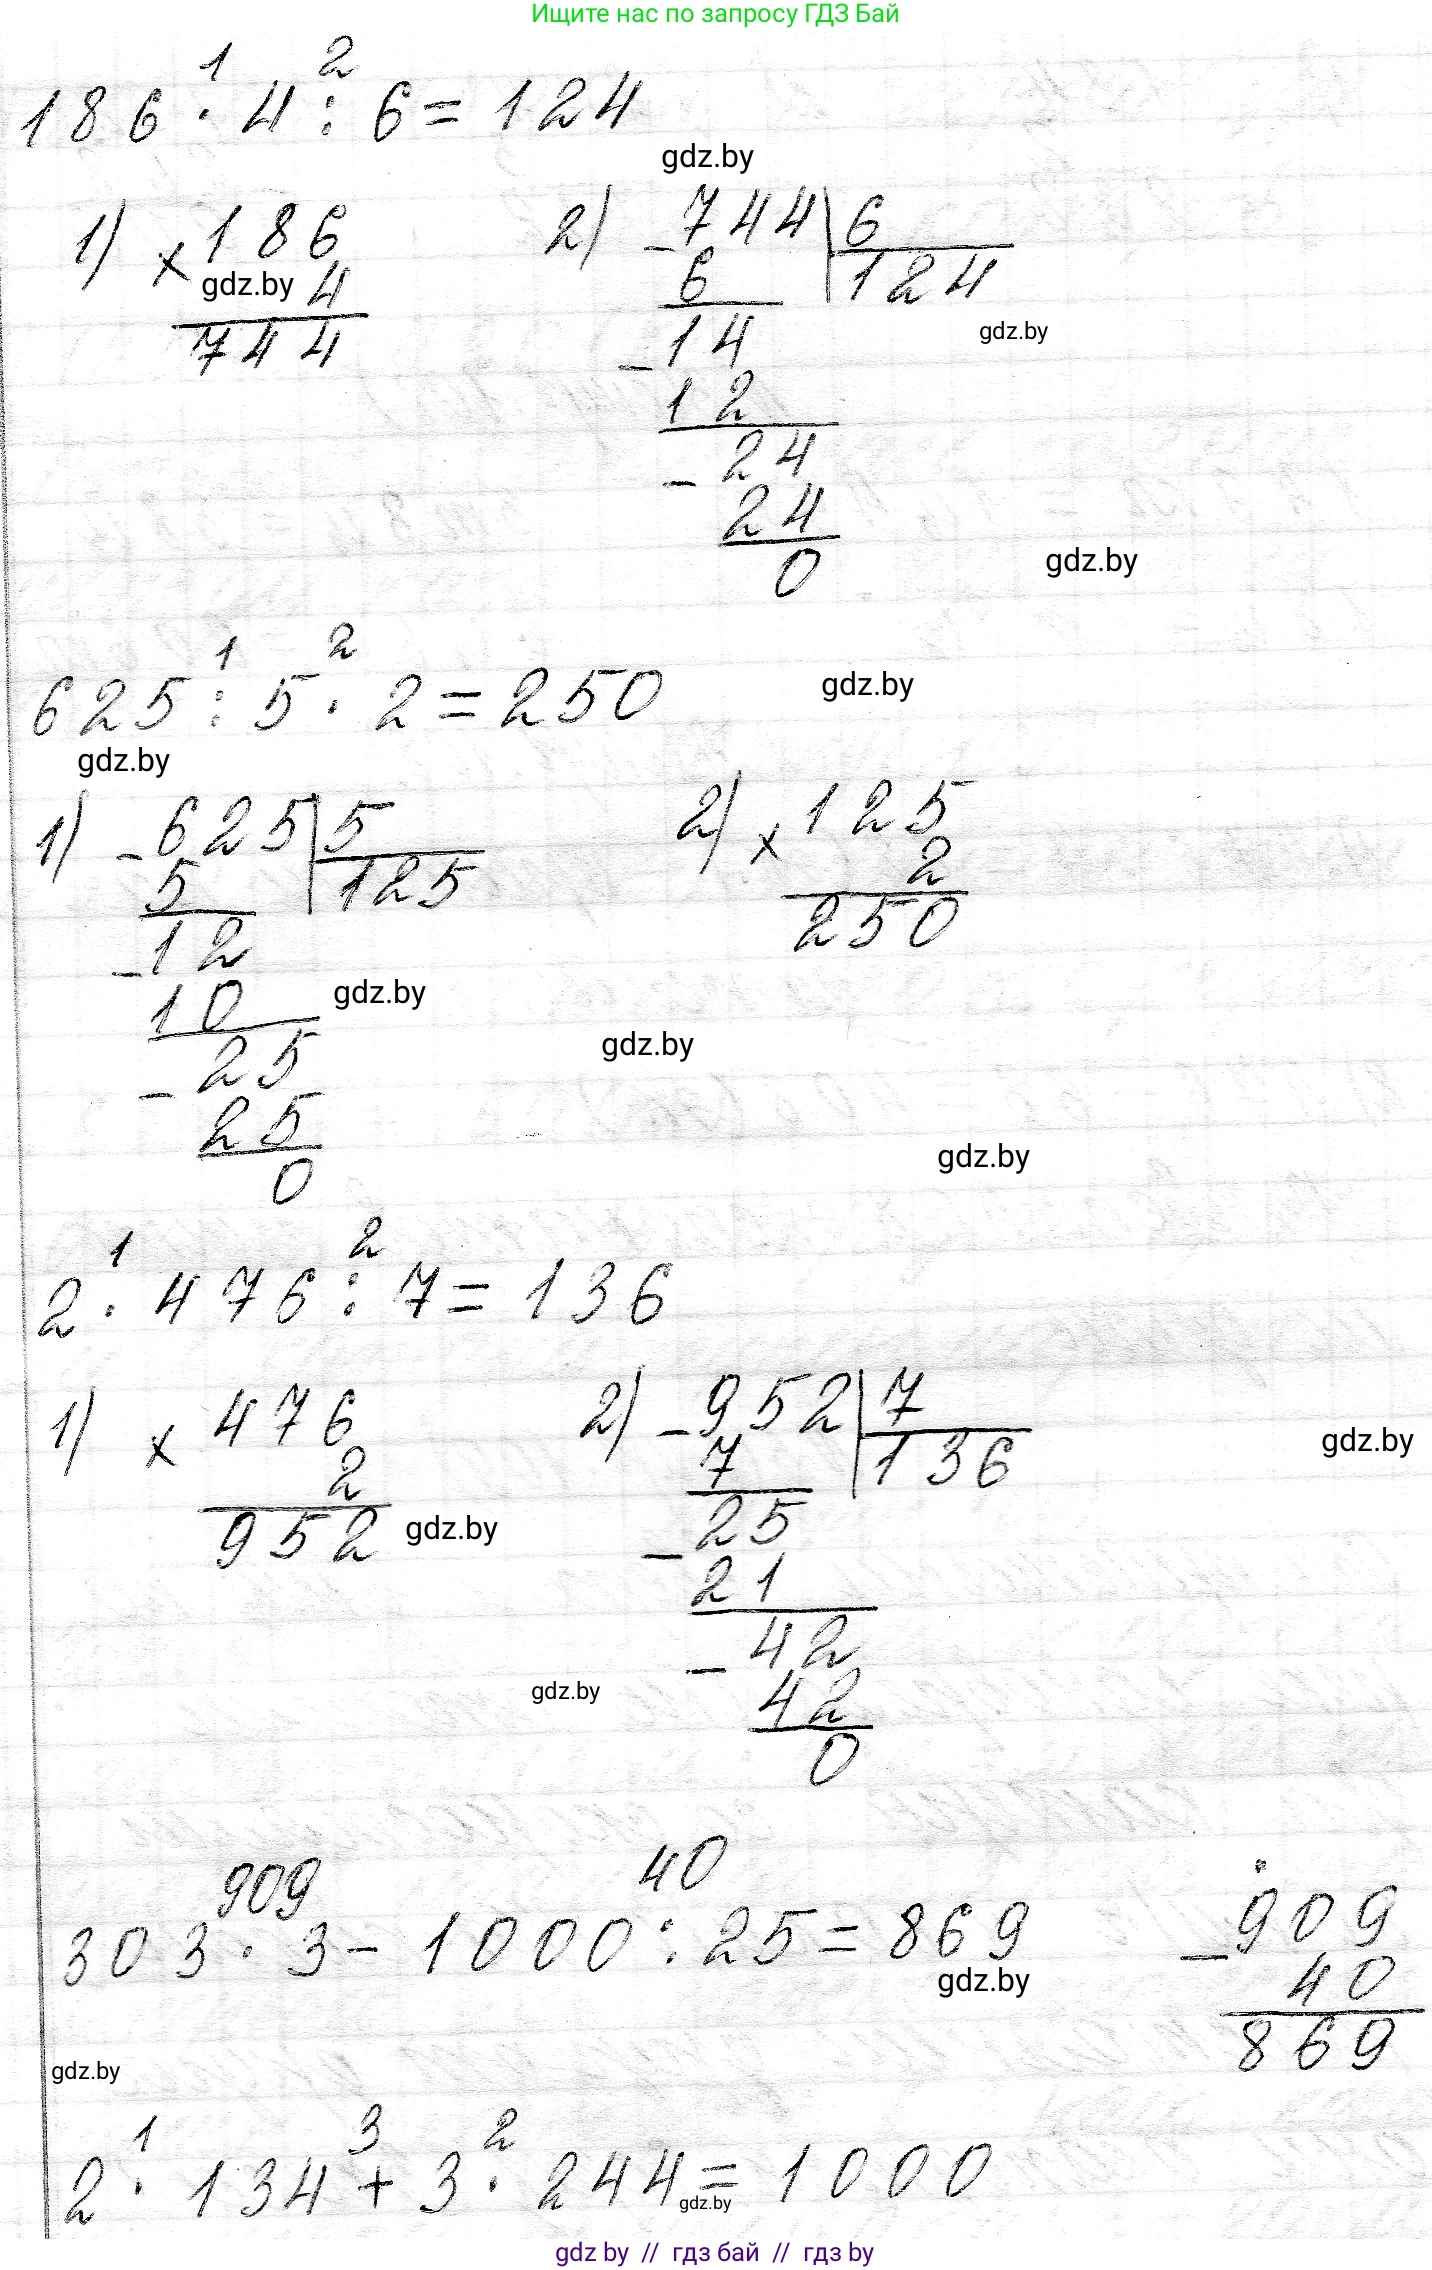 Ищите нас по запросу ГДЗ Бай
1 2
186 · 4 : 6 = 124
gdz.by
1) × 186
gdz.by 4
744
2) - 744 | 6
6 124
gdz.by
- 14
12
- 24
24
0
gdz.by
1 2
625 : 5 · 2 = 250
gdz.by
gdz.by
1) - 625 | 5
5 125
- 12
10
gdz.by
- 25
25
0
2) × 125
2
250
gdz.by
gdz.by
1 2
2 · 476 : 7 = 136
1) × 476
2
952
gdz.by
2) - 952 | 7
7 136
gdz.by
- 25
21
- 42
gdz.by
42
0
909 40
303 · 3 - 1000 : 25 = 869
gdz.by
- 909
40
869
gdz.by
1 3 2
2 · 134 + 3 · 244 = 1000
gdz.by
gdz by // гдз бай // гдз by